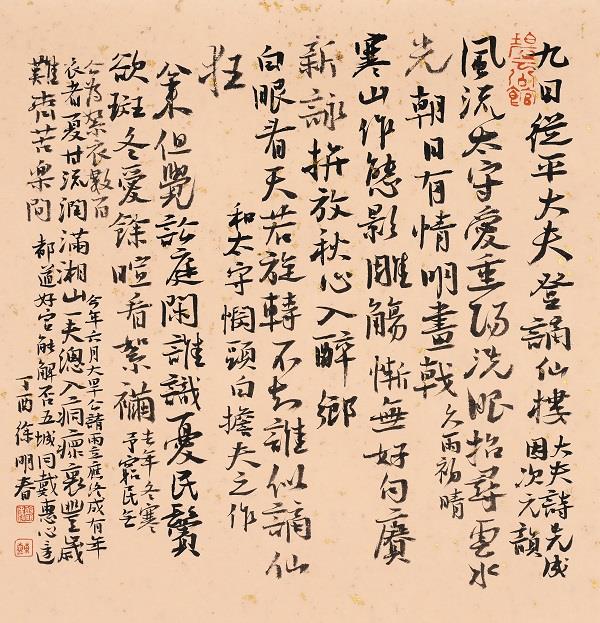 九日從平大夫登謫仙樓 大夫詩先成
因次元韻
風流太守愛重陽洗眼招尋雲水
先朝日有情明畫戟 久雨初晴
寒山作態影雕觴慚無好句賡
新詠拚放秋心入醉鄉
白眼看天若旋轉不知誰似謫仙
狂
和太守惘頭白擔夫之作
來但覺訟庭閑誰識憂民鬢
欲斑冬愛餘暄看絮 去年冬寒
予窮民
公為絮衣數百
衣者夏甘流潤滿湘山 今年六月大旱公請雨立應終成有年
一夫總入痌瘝裏豐歲
難齊苦樂間 都道好官能解否五城同戴惠心
丁酉徐明春